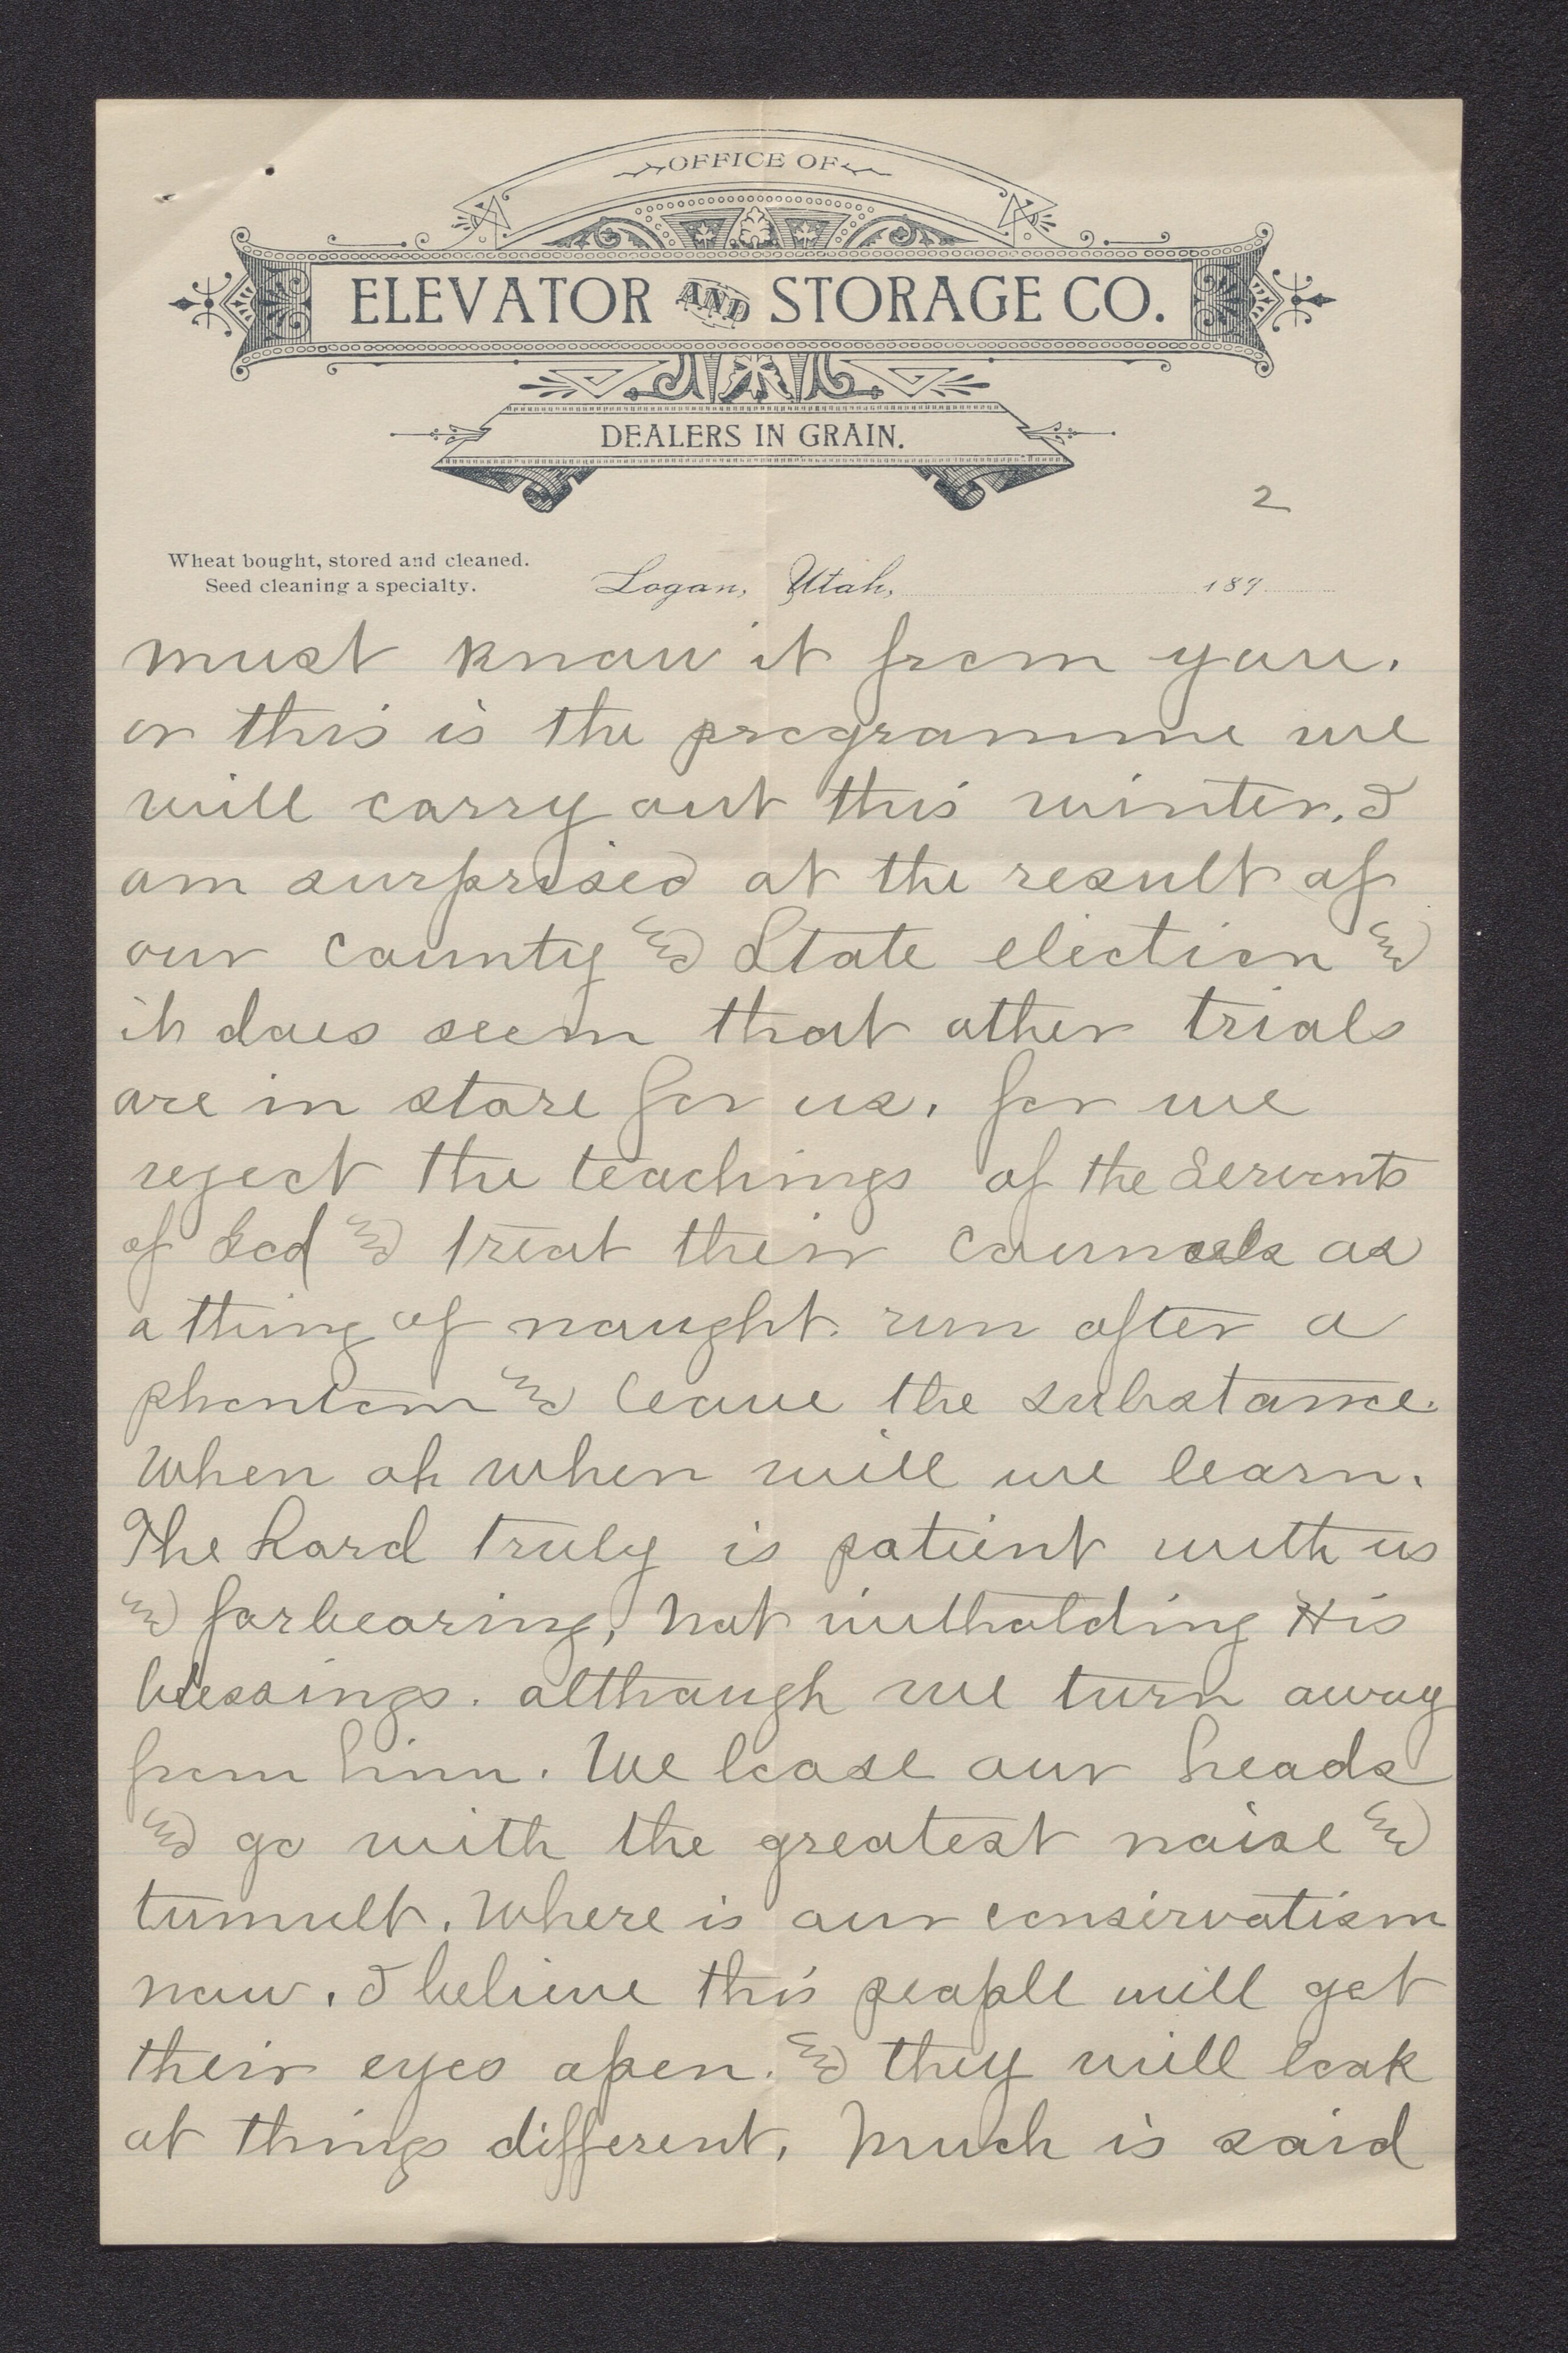 OFFICE OF
ELEVATOR AND STORAGE CO.
DEALERS IN GRAIN.
2
Wheat bought, stored and cleaned.
Seed cleaning a specialty.
Logan, Utah, 189
must know it from you.
or this is the programme we
will carry out this winter. I
am surprised at the result of
our county & State election &
it does seem that other trials
are in store for us. for we
reject the teachings of the Servents
of God & treat their councels as
a thing of naught. run after a
phantom & leave the substance.
When oh when will we learn.
The Lord truly is patient with us
& forbearing, not witholding His
blessings. although we turn away
from him. We loose our heads
& go with the greatest noise &
tumult. Where is our conservatism
now. I believe this people will get
their eyes open. & they will look
at things different. Much is said